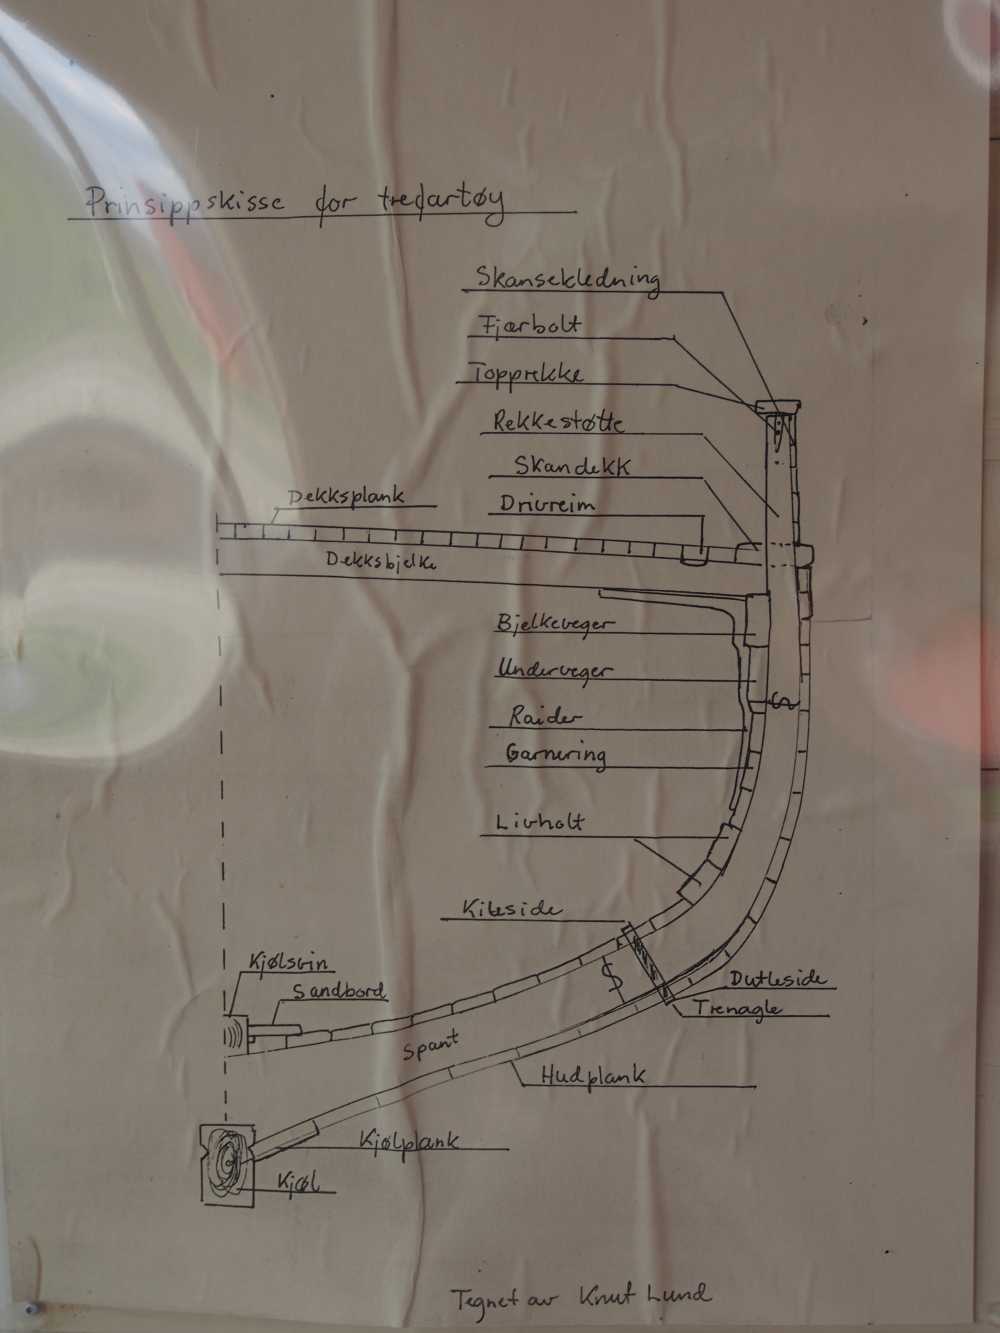 Prinsippskisse for trefartøy
Skansekledning
Fjærbolt
Topprekke
Rekkestøtte
Skandekk
Drivreim
Dekksplank
Dekksbjelke
Bjelkeveger
Underveger
Raider
Garnering
Livholt
Kileside
Kjølsvin
Sandbord
Dutleside
Trenagle
Spant
Hudplank
Kjølplank
Kjøl
Tegnet av Knut Lund